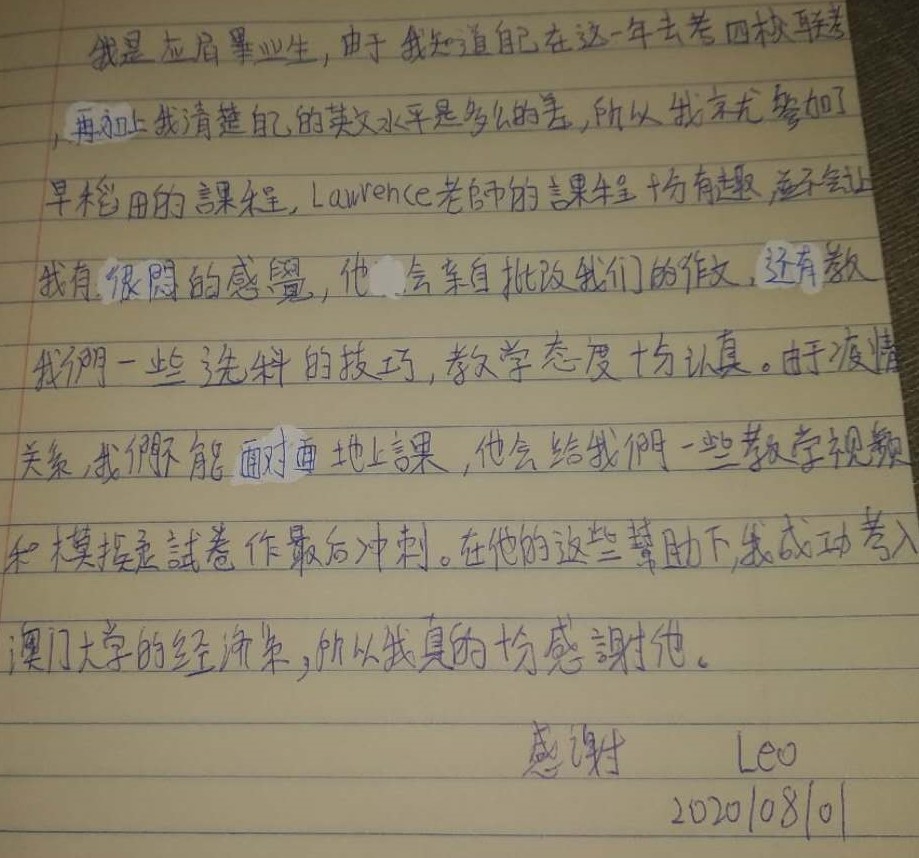 我是应届畢业生，由于我知道自己在这一年去考四校联考
，再加上我清楚自己的英文水平是多么的差，所以我就参加了
早稻田的課程，Lawrence老師的課程十分有趣，并不会让
我有很悶的感覺，他会亲自批改我们的作文，还有教
我們一些选科的技巧，教学态度十分认真。由于疫情
关系，我們不能面对面地上課，他会给我們一些教学视频
和模拟試卷作最后冲刺。在他的这些幫助下，我成功考入
澳门大学的经济系，所以我真的十分感謝他。
感谢 Leo
2020/08/01